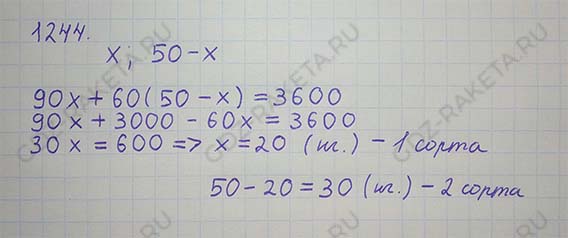 1244.
x; 50-x
90x+60(50-x)=3600
90x+3000-60x=3600
30x=600=>x=20 (кг.)-1 сорта
50-20=30 (кг.)-2 сорта
GDZ-RAKETA.RU